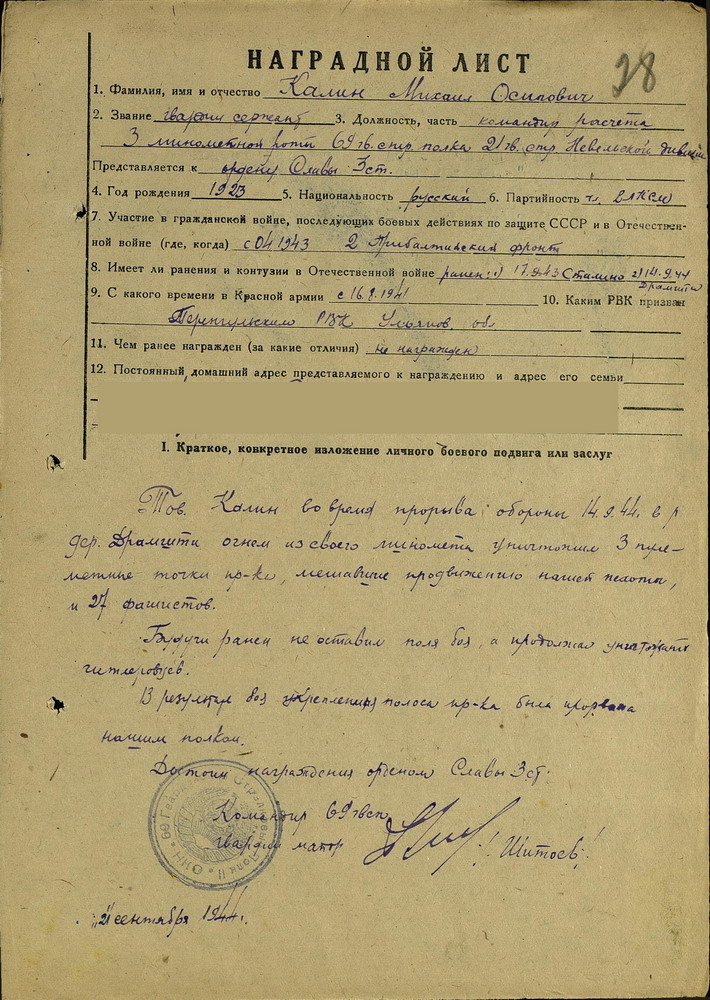 28
НАГРАДНОЙ ЛИСТ
1. Фамилия, имя и отчество Калин Михаил Осипович
2. Звание гвардии сержант 3. Должность, часть командир расчета
3 минометной роты 69 гв. стр. полка 21 гв. стр. Невельской дивизии
Представляется к ордену Славы 3 ст.
4. Год рождения 1923 5. Национальность русский 6. Партийность чл. ВЛКСМ
7. Участие в гражданской войне, последующих боевых действиях по защите СССР и в Отечествен-
ной войне (где, когда) с 04.1943 2 Прибалтийский фронт
8. Имеет ли ранения и контузии в Отечественной войне ранен: 1) 17.9.43 Сталино 2) 14.9.44
Драмшти
9. С какого времени в Красной армии с 16.9.1941 10. Каким РВК призван
РВК Ульянов. обл
11. Чем ранее награжден (за какие отличия) не награжден
12. Постоянный домашний адрес представляемого к награждению и адрес его семьи
I. Краткое, конкретное изложение личного боевого подвига или заслуг
Тов. Калин во время прорыва обороны 14.9.44. в р
дер. Драмшти огнем из своего миномета уничтожил 3 пуле-
метные точки пр-ка, мешавшие продвижению нашей пехоты,
и 27 фашистов.
Будучи ранен не оставил поля боя, а продолжал уничтожать
гитлеровцев.
В результате боя укрепленная полоса пр-ка была прорвана
нашим полком.
Достоин награждения орденом Славы 3 ст.
Командир 69 гвсп
гвардии майор /Шитов/
"21" сентября 1944 г.